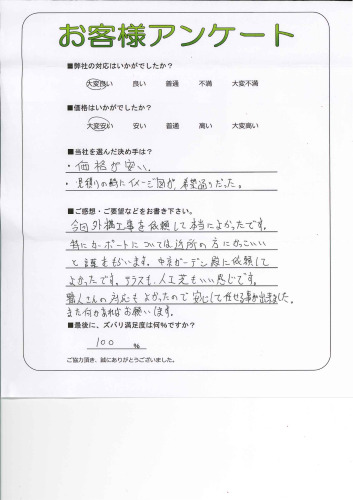 お客様アンケート
■弊社の対応はいかがでしたか？
大変良い 良い 普通 不満 大変不満
■価格はいかがでしたか？
大変安い 安い 普通 高い 大変高い
■当社を選んだ決め手は？
・価格が安い。
・見積りの時にイメージ図が、希望通りだった。
■ご感想・ご要望などをお書き下さい。
今回外構工事を依頼して本当によかったです。
特にカーポートについては近所の方にかっこいい
と言てもらいます。中京ガーデン殿に依頼して
よかったです。テラスも、人工芝もいい感じです。
職人さんの対応もよかったので安心して任せる事が出来ました。
また何かあればお願いします。
■最後に、ズバリ満足度は何%ですか？
100 %
ご協力頂き、誠にありがとうございました。